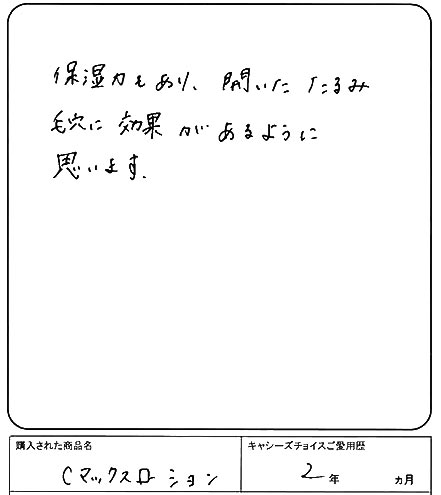 保湿力もあり、開いた たるみ
毛穴に 効果 があるように
思います.
購入された商品名
Cマックスローション
キャシーズチョイスご愛用歴
2年 ヵ月